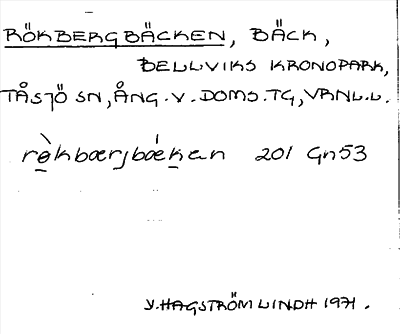 RÖKBERGBÄCKEN, BÄCK,
BELLVIKS KRONOPARK,
TÅSJÖ SN, ÅNG.V.DOMS.TG, VRNL.L.
rø̀kbærjbǽkan 201 Gn53
Y.HAGSTRÖM LINDH 1971.